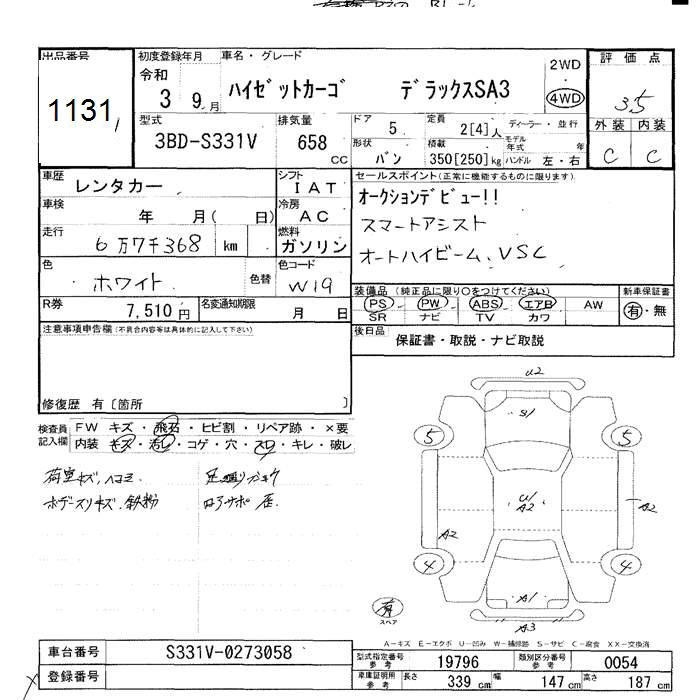 出品番号 初度登録年月 車名・グレード 2WD 評価点
1131 令和 3 9月 ハイゼットカーゴ デラックスSA3 4WD 3.5
型式 排気量 ドア 定員 ディーラー・並行 外装 内装
3BD-S331V 658 CC 5 2[4]人 モデル年式 年 C C
形状 積載
バン 350[250]kg ハンドル 左・右
車歴 レンタカー シフト IAT セールスポイント(正常に機能するものに限ります)
車検 年 月( 日) 冷房 AC オークションデビュー!!
走行 6万7千368 km 燃料 ガソリン スマートアシスト
オートハイビーム、VSC
色 ホワイト 色替 色コード W19
R券 7,510円 名変通知期限 月 日
装備品(純正品に限り○をつけてください) 新車保証書
PS PW ABS エアB AW 有・無
SR ナビ TV カワ
注意事項申告欄(不具合内容等は具体的に記入して下さい)
後日品 保証書・取説・ナビ取説
修復歴 有〔箇所 〕
検査員記入欄 FW キズ・飛石・ヒビ割・リペア跡・×要
内装 キズ・汚レ・コゲ・穴・スレ・キレ・破レ
荷室キズ、ヘコミ
ボデースリキズ、鉄粉
U2
S1
5 5
U1
A2
A2
A2
4 4
A1
A3
有
スペア
A-キズ E-エクボ U-凹み W-補修跡 S-サビ C-腐食 XX-交換済
車台番号 S331V-0273058
登録番号
型式指定番号参考 19796 類別区分番号参考 0054
車庫証明用参考 長さ 339cm 幅 147cm 高さ 187cm